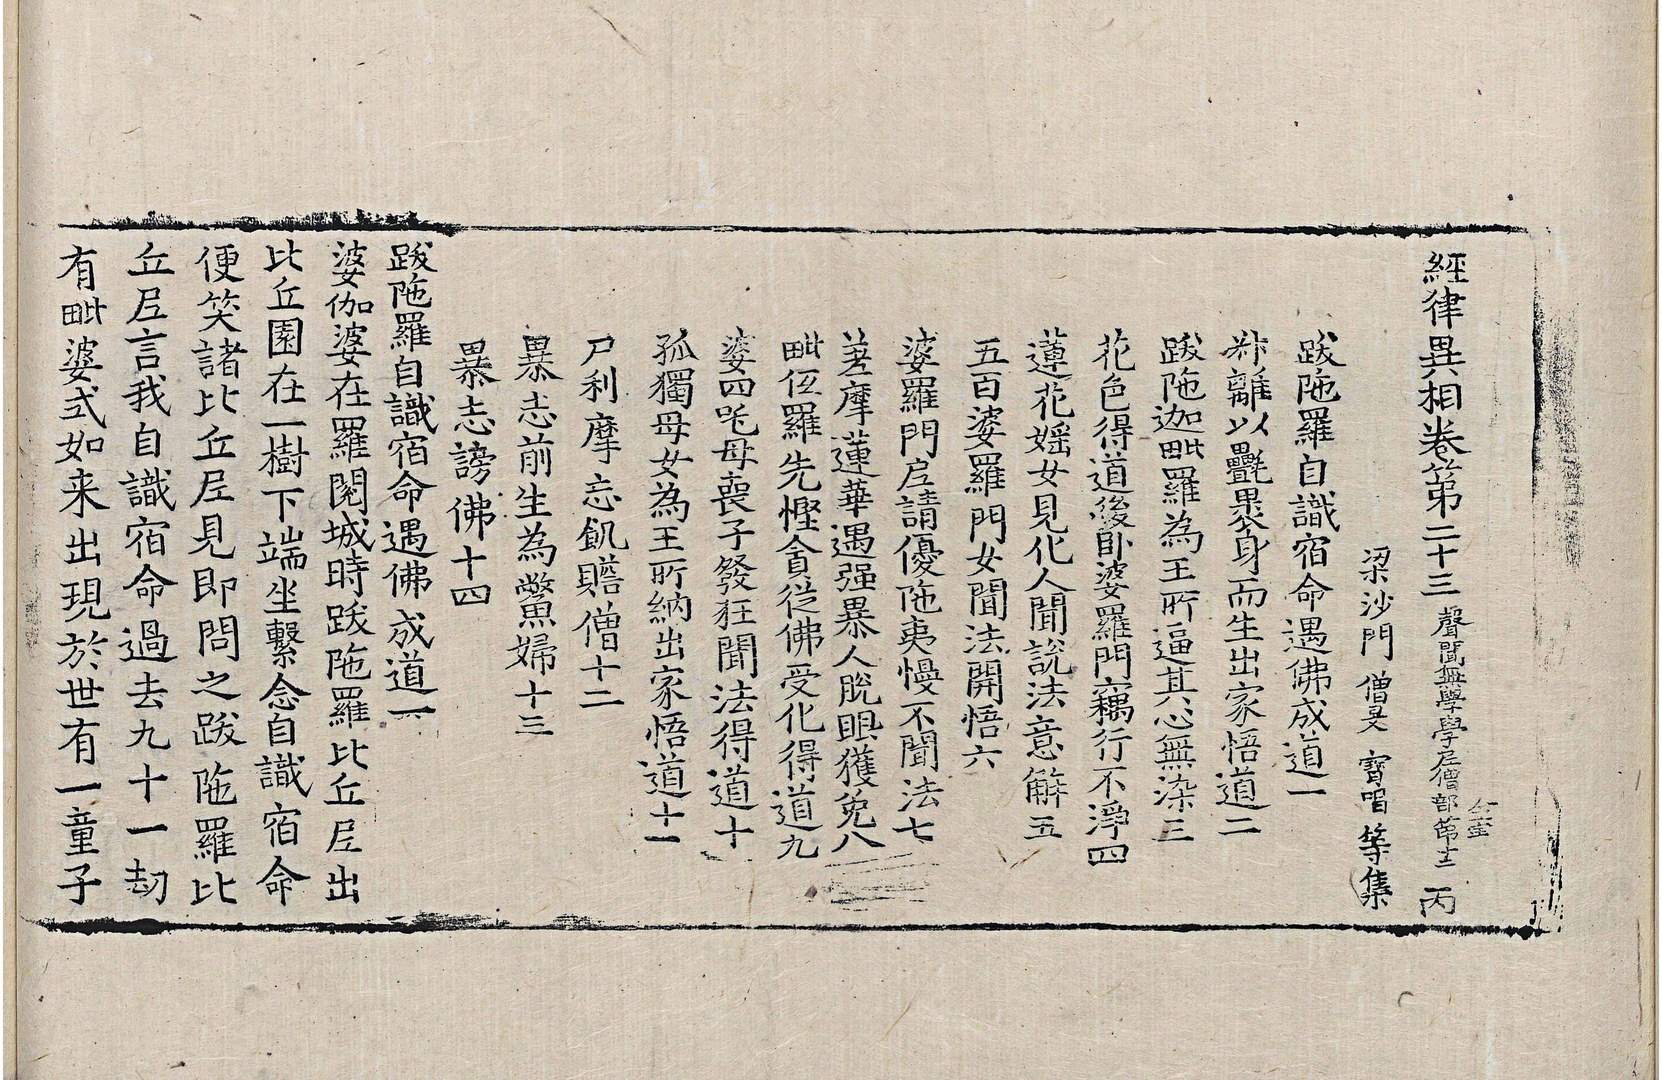 經律異相卷第二十三 聲聞無學學尼僧部第十二 丙
梁沙門 僧旻 寶唱 等集
跋陁羅自識宿命遇佛成道一
叔離以㲲褁身而生出家悟道二
跋陁迦毗羅為王所逼其心無染三
花色得道後卧婆羅門竊行不淨四
蓮花婬女見化人聞說法意解五
五百婆羅門女聞法開悟六
婆羅門尼請優陁夷慢不聞法七
差摩蓮華遇强暴人脫眼獲免八
毗伍羅先慳貪從佛受化得道九
婆四吒母喪子發狂聞法得道十
孤獨母女為王所納出家悟道十一
尸利摩忘飢贍僧十二
暴志前生為鱉婦十三
暴志謗佛十四
跋陁羅自識宿命遇佛成道一
婆伽婆在羅閱城時跋陁羅比丘尼出
比丘園在一樹下端坐繫念自識宿命
便笑諸比丘尼見即問之跋陁羅比
丘尼言我自識宿命過去九十一劫
有毗婆式如来出現於世有一童子